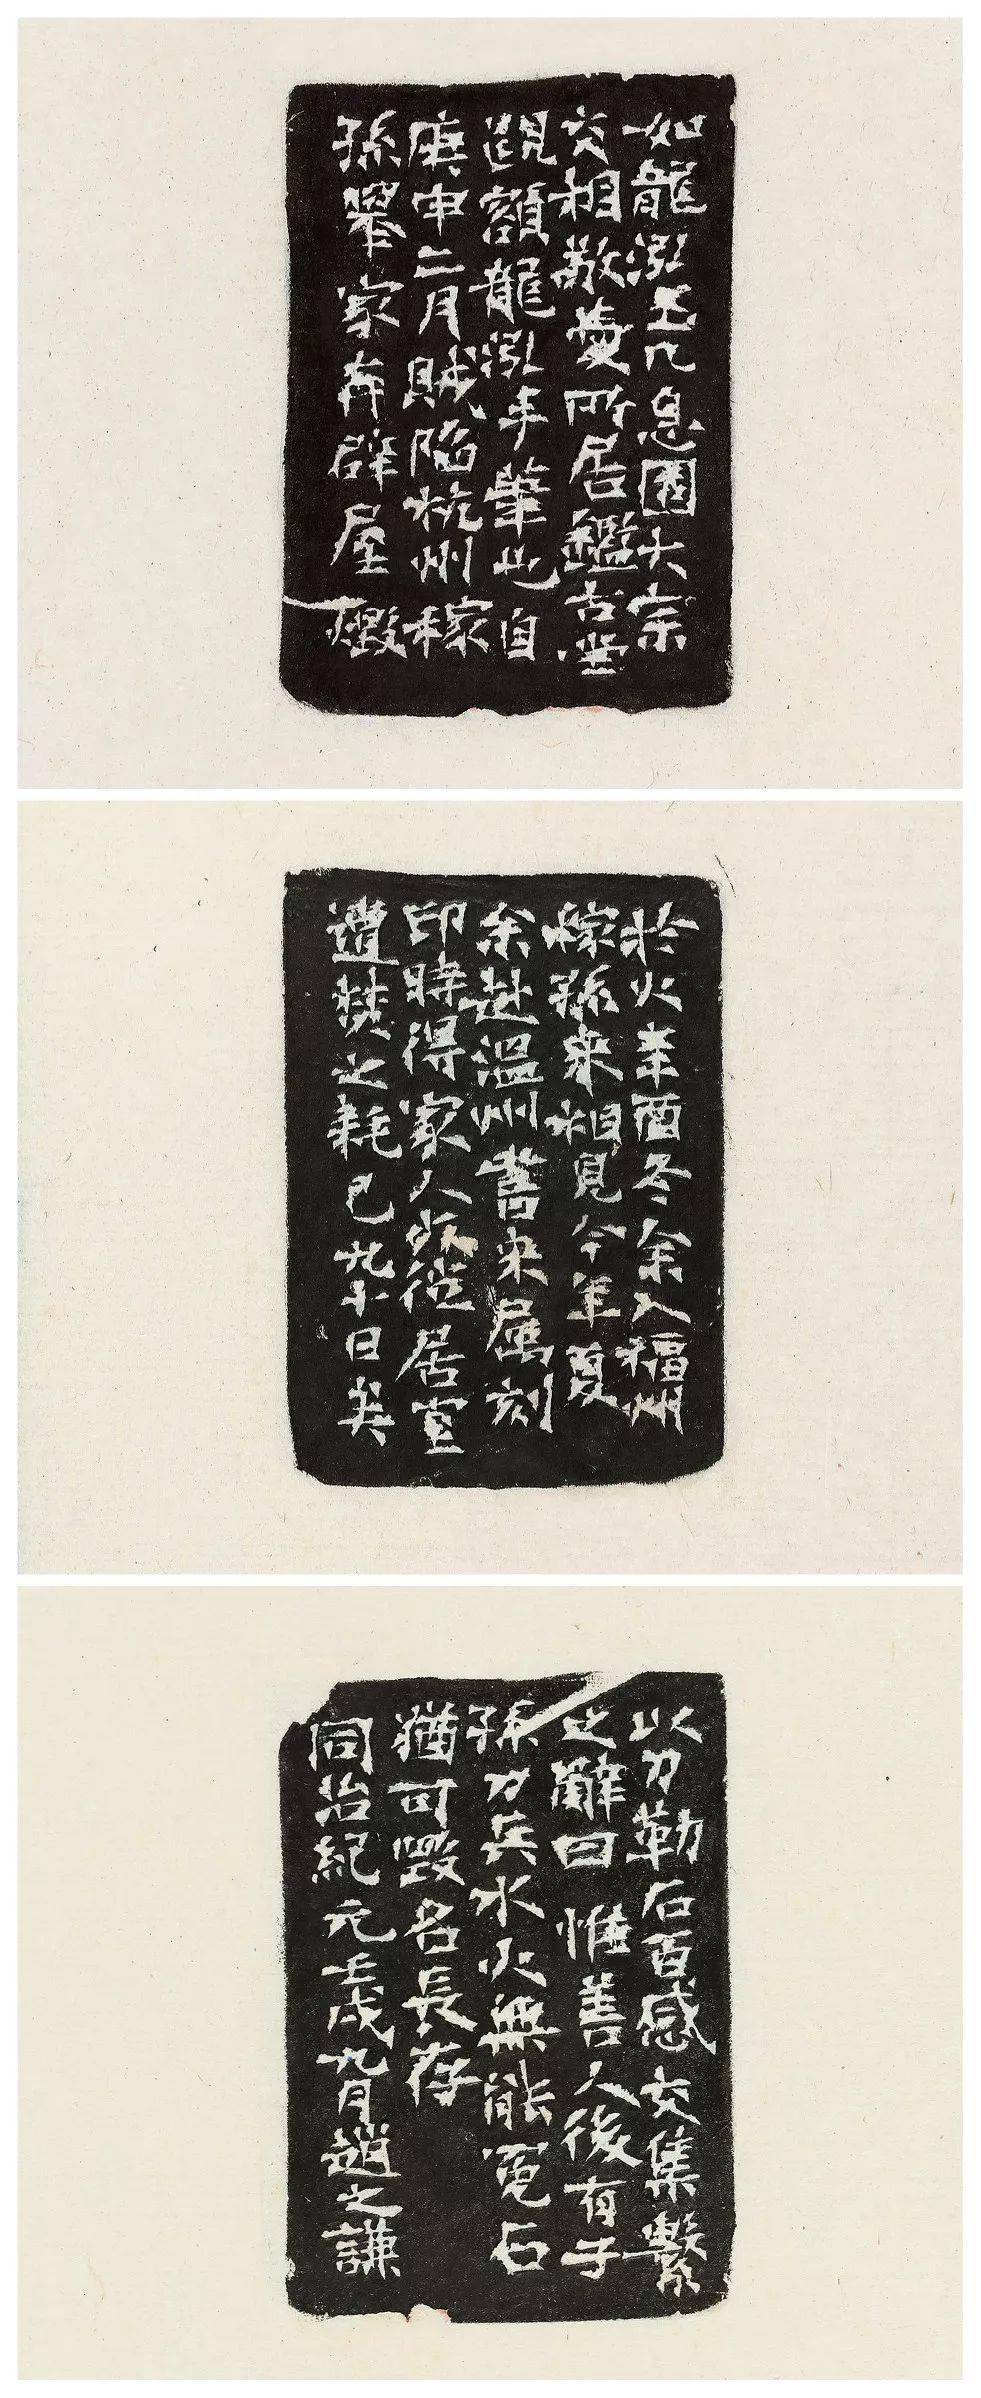 如龍泓玉几息園大宗
交相敬愛所居鑑古堂
額龍泓手筆也自
庚申二月賊陷杭州稼
孫舉家奔辟屋燬
於火辛酉冬余入福州
稼孫來相見今年夏
余赴溫州書來屬刻
印時得家人死徙居室
遭焚之耗已九十日矣
以刀勒石百感交集繫
之辭曰 惟善人後有子
孫刀兵水火無能冤石
猶可毀名長存
同治紀元壬戌九月趙之謙